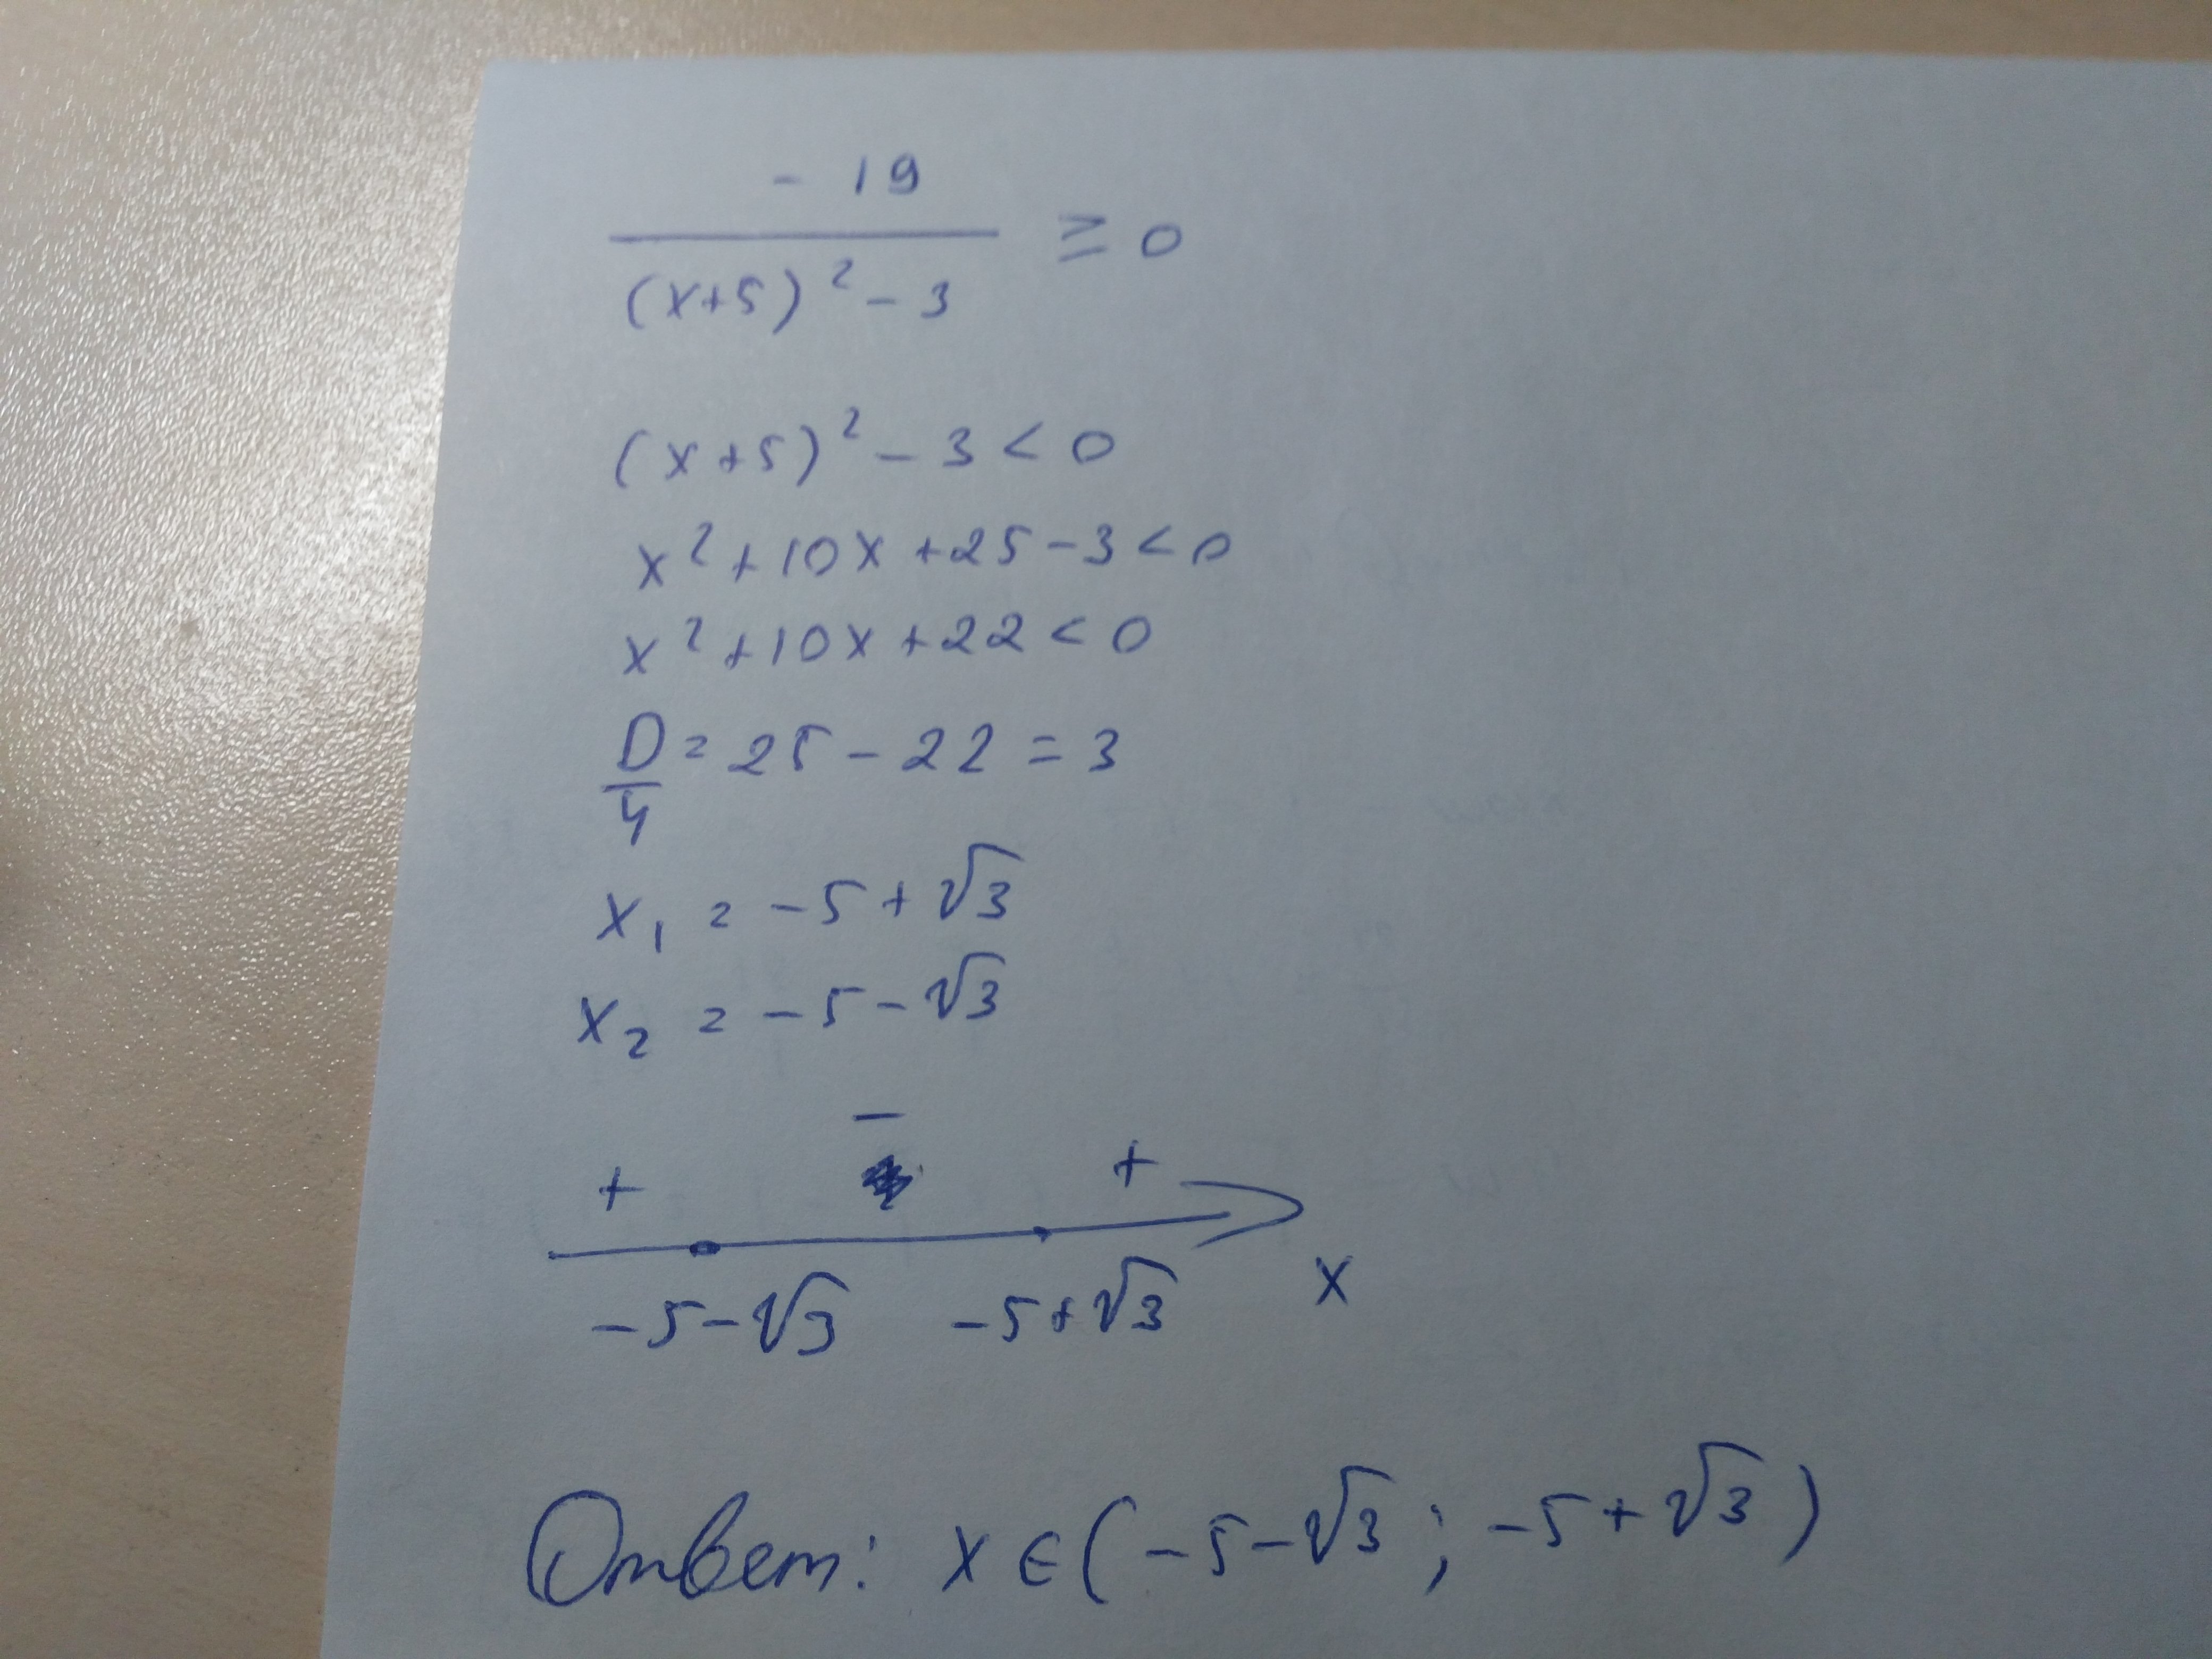 - 19
(x+5)² - 3 ≥ 0
(x+5)² - 3 < 0
x² + 10x + 25 - 3 < 0
x² + 10x + 22 < 0
D/4 = 25 - 22 = 3
x₁ = -5 + √3
x₂ = -5 - √3
+ - +
-5-√3 -5+√3 x
Ответ: x ∈ (-5-√3; -5+√3)